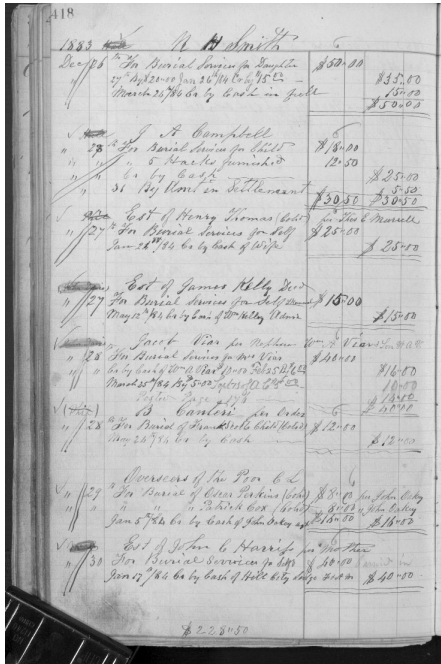 418
1883 N H Smith
Dec 26 To For Burial Services for Daughter $50.00
27th By $20.00 Jan 26th 84 Co by $15 $35.00
" March 26th/84 Co by Cash in full 15.00
$50.00
J A Campbell
" 28 For Burial Services for Child $18.00
" " " 5 Hacks furnished 12.50
" " Co by Cash $25.00
" 31 By Rent in Settlement 5.50
$30.50 $30.50
Est of Henry Thomas (Cold) per Thos C Murrell
" 27 For Burial Services for Self $25.00
Jan 28th/84 Co by Cash of Wife $25.00
Est of James Kelly Decd
" 27 For Burial Services for Self $15.00
May 12th/84 Co by Cash of Wm Kelly Admr $15.00
Jacob Vias per Nephew Wm A Vias
" 28 For Burial Services for Mrs Vias $40.00
Co by Cash of Wm A 10.00 Feb 25 $16.00
March 25th/84 By 5.00 10.00
Page 14.00
$40.00
B Canteri per Order
" 28 For Burial of Child $12.00
May 28th/84 Co by Cash $12.00
Overseers of the Poor C L
" 29 For Burial of Oscar Perkins (Cold) $8.00 per John Oakey
" " " " Patrick Cox (Cold) 8.00 " John Oakey
Jan 5th/84 Co by Cash of John Oakey agt $16.00 $16.00
Est of John C Harris per Mother
" 30 For Burial Services for Self $40.00
Jan 17th/84 Co by Cash of Hill City Lodge $40.00
$228.50